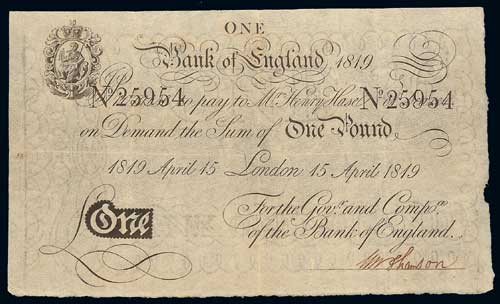 ONE
Bank of England 1819
Nº 25954 to pay to Mr. Henry Hase Nº 25954
on Demand the Sum of One Pound
1819 April 15 London 15 April 1819
For the Govr. and Compa. 
of the Bank of England.
£ One